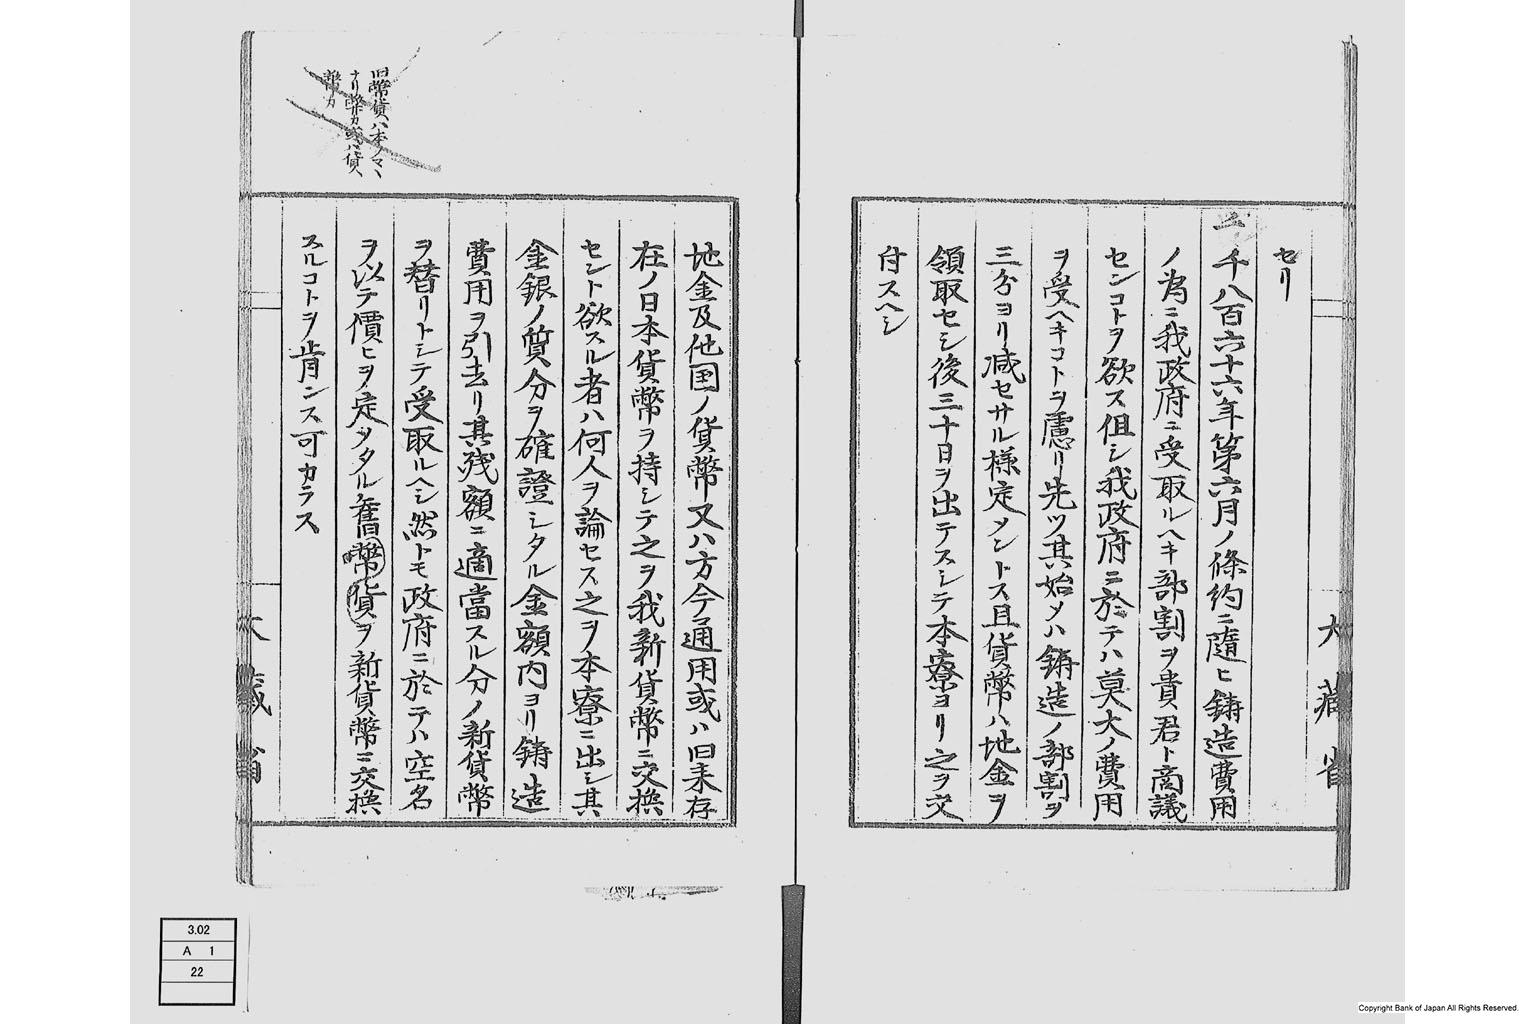 セリ
一 千八百六十六年第六月ノ條約ニ隨ヒ鋳造費用
ノ為ニ我政府ニ受取ルヘキ部割ヲ貴君ト商議
センコトヲ欲ス但シ我政府ニ於テハ莫大ノ費用
ヲ受ヘキコトヲ慮リ先ツ其始メハ鋳造ノ部割ヲ
三分ヨリ减セサル様定メントス且貨幣ハ地金ヲ
領取セシ後三十日ヲ出テスシテ本寮ヨリ之ヲ交
付スヘシ
大藏省
地金及他国ノ貨幣又ハ方今通用或ハ旧来存
在ノ日本貨幣ヲ持シテ之ヲ我新貨幣ニ交換
セント欲スル者ハ何人ヲ論セス之ヲ本寮ニ出シ其
金銀ノ質分ヲ確證シタル金額内ヨリ鋳造
費用ヲ引去リ其残額ニ適當スル分ノ新貨幣
ヲ替リトシテ受取ルヘシ然トモ政府ニ於テハ空名
ヲ以テ價ヒヲ定メタル舊幣貨ヲ新貨幣ニ交換
スルコトヲ肯ンス可カラス
旧幣貨ハ本ノマヽ
ナリ幣カ或ハ貨
幣カ
大藏省
3.02
A 1
22
Copyright Bank of Japan All Rights Reserved.